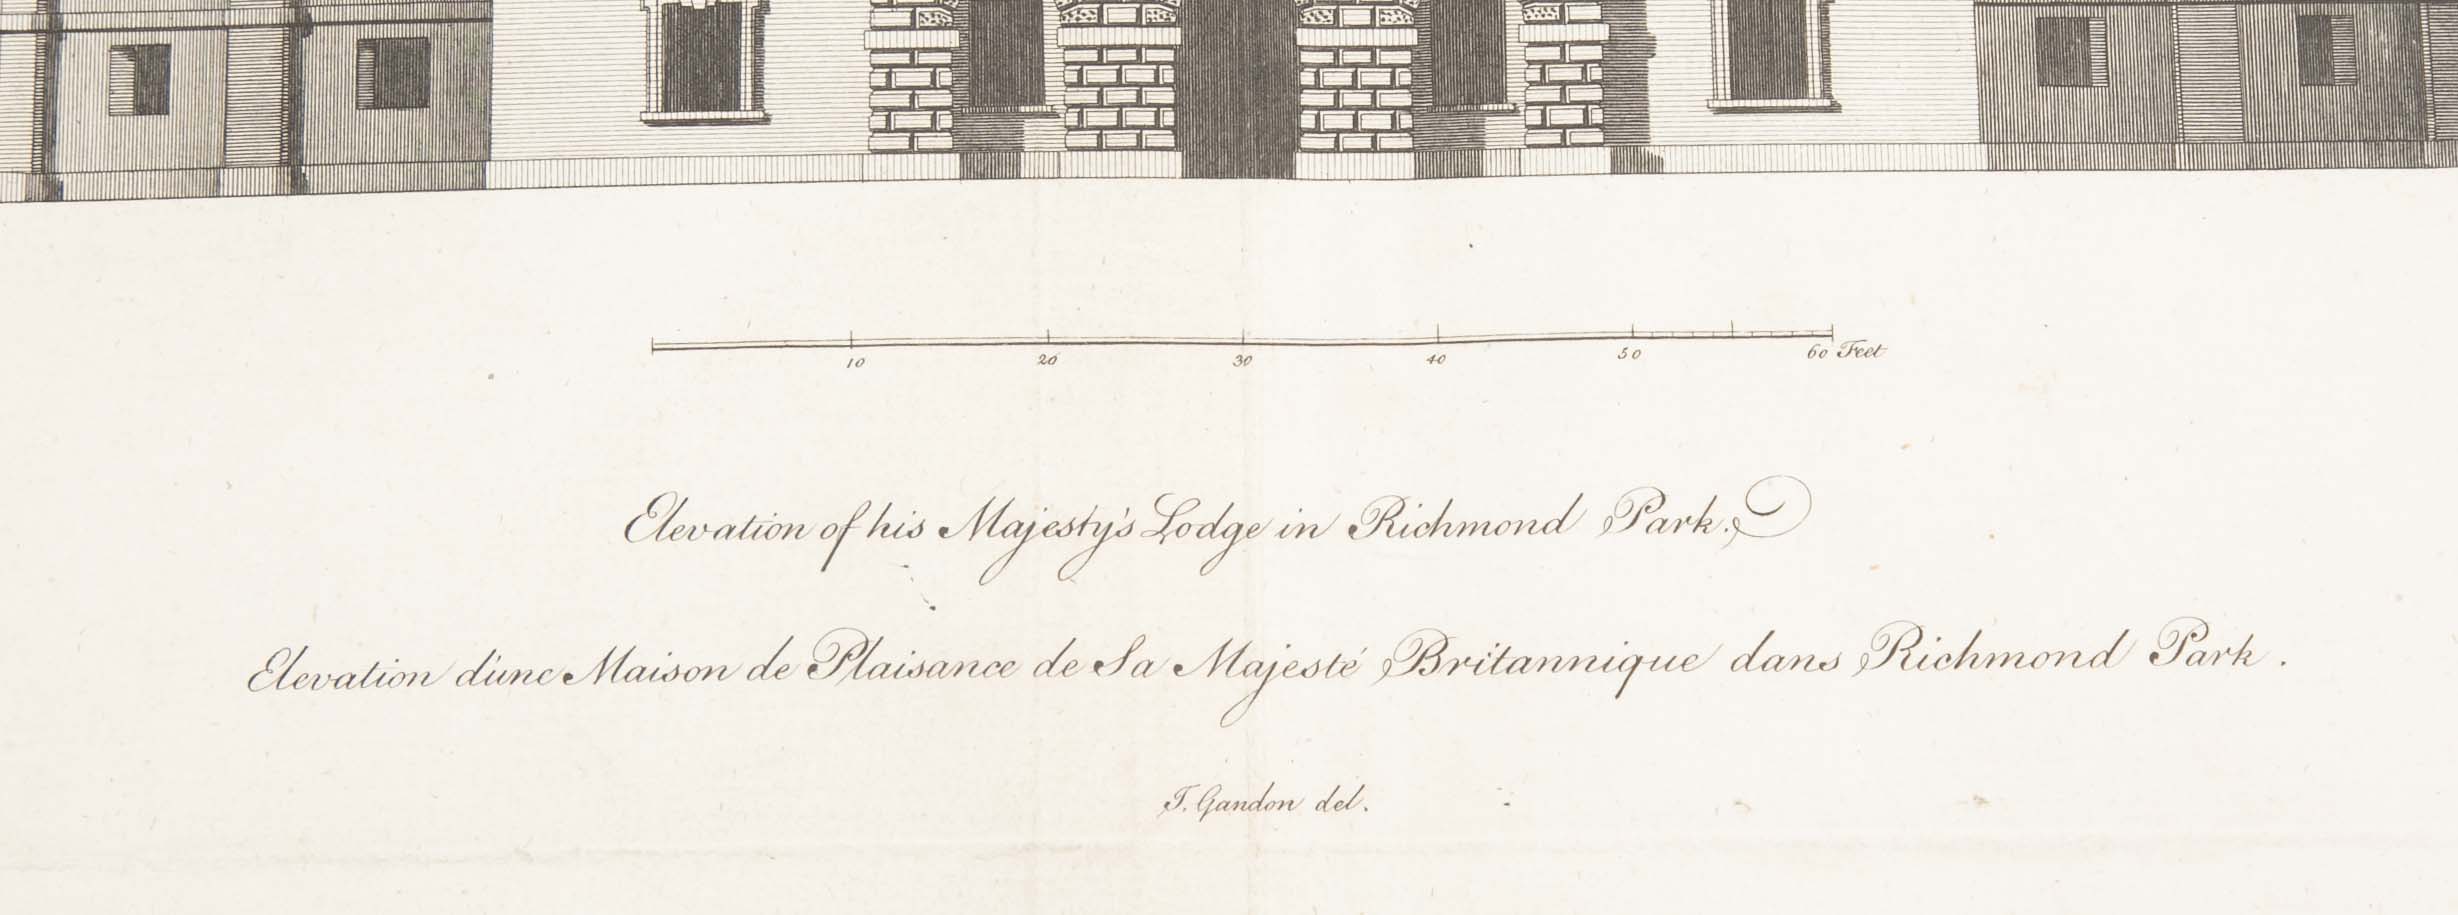 10 20 30 40 50 60 Feet
Elevation of his Majesty's Lodge in Richmond Park.
Elevation d'une Maison de Plaisance de Sa Majesté Britannique dans Richmond Park.
J. Gandon del.